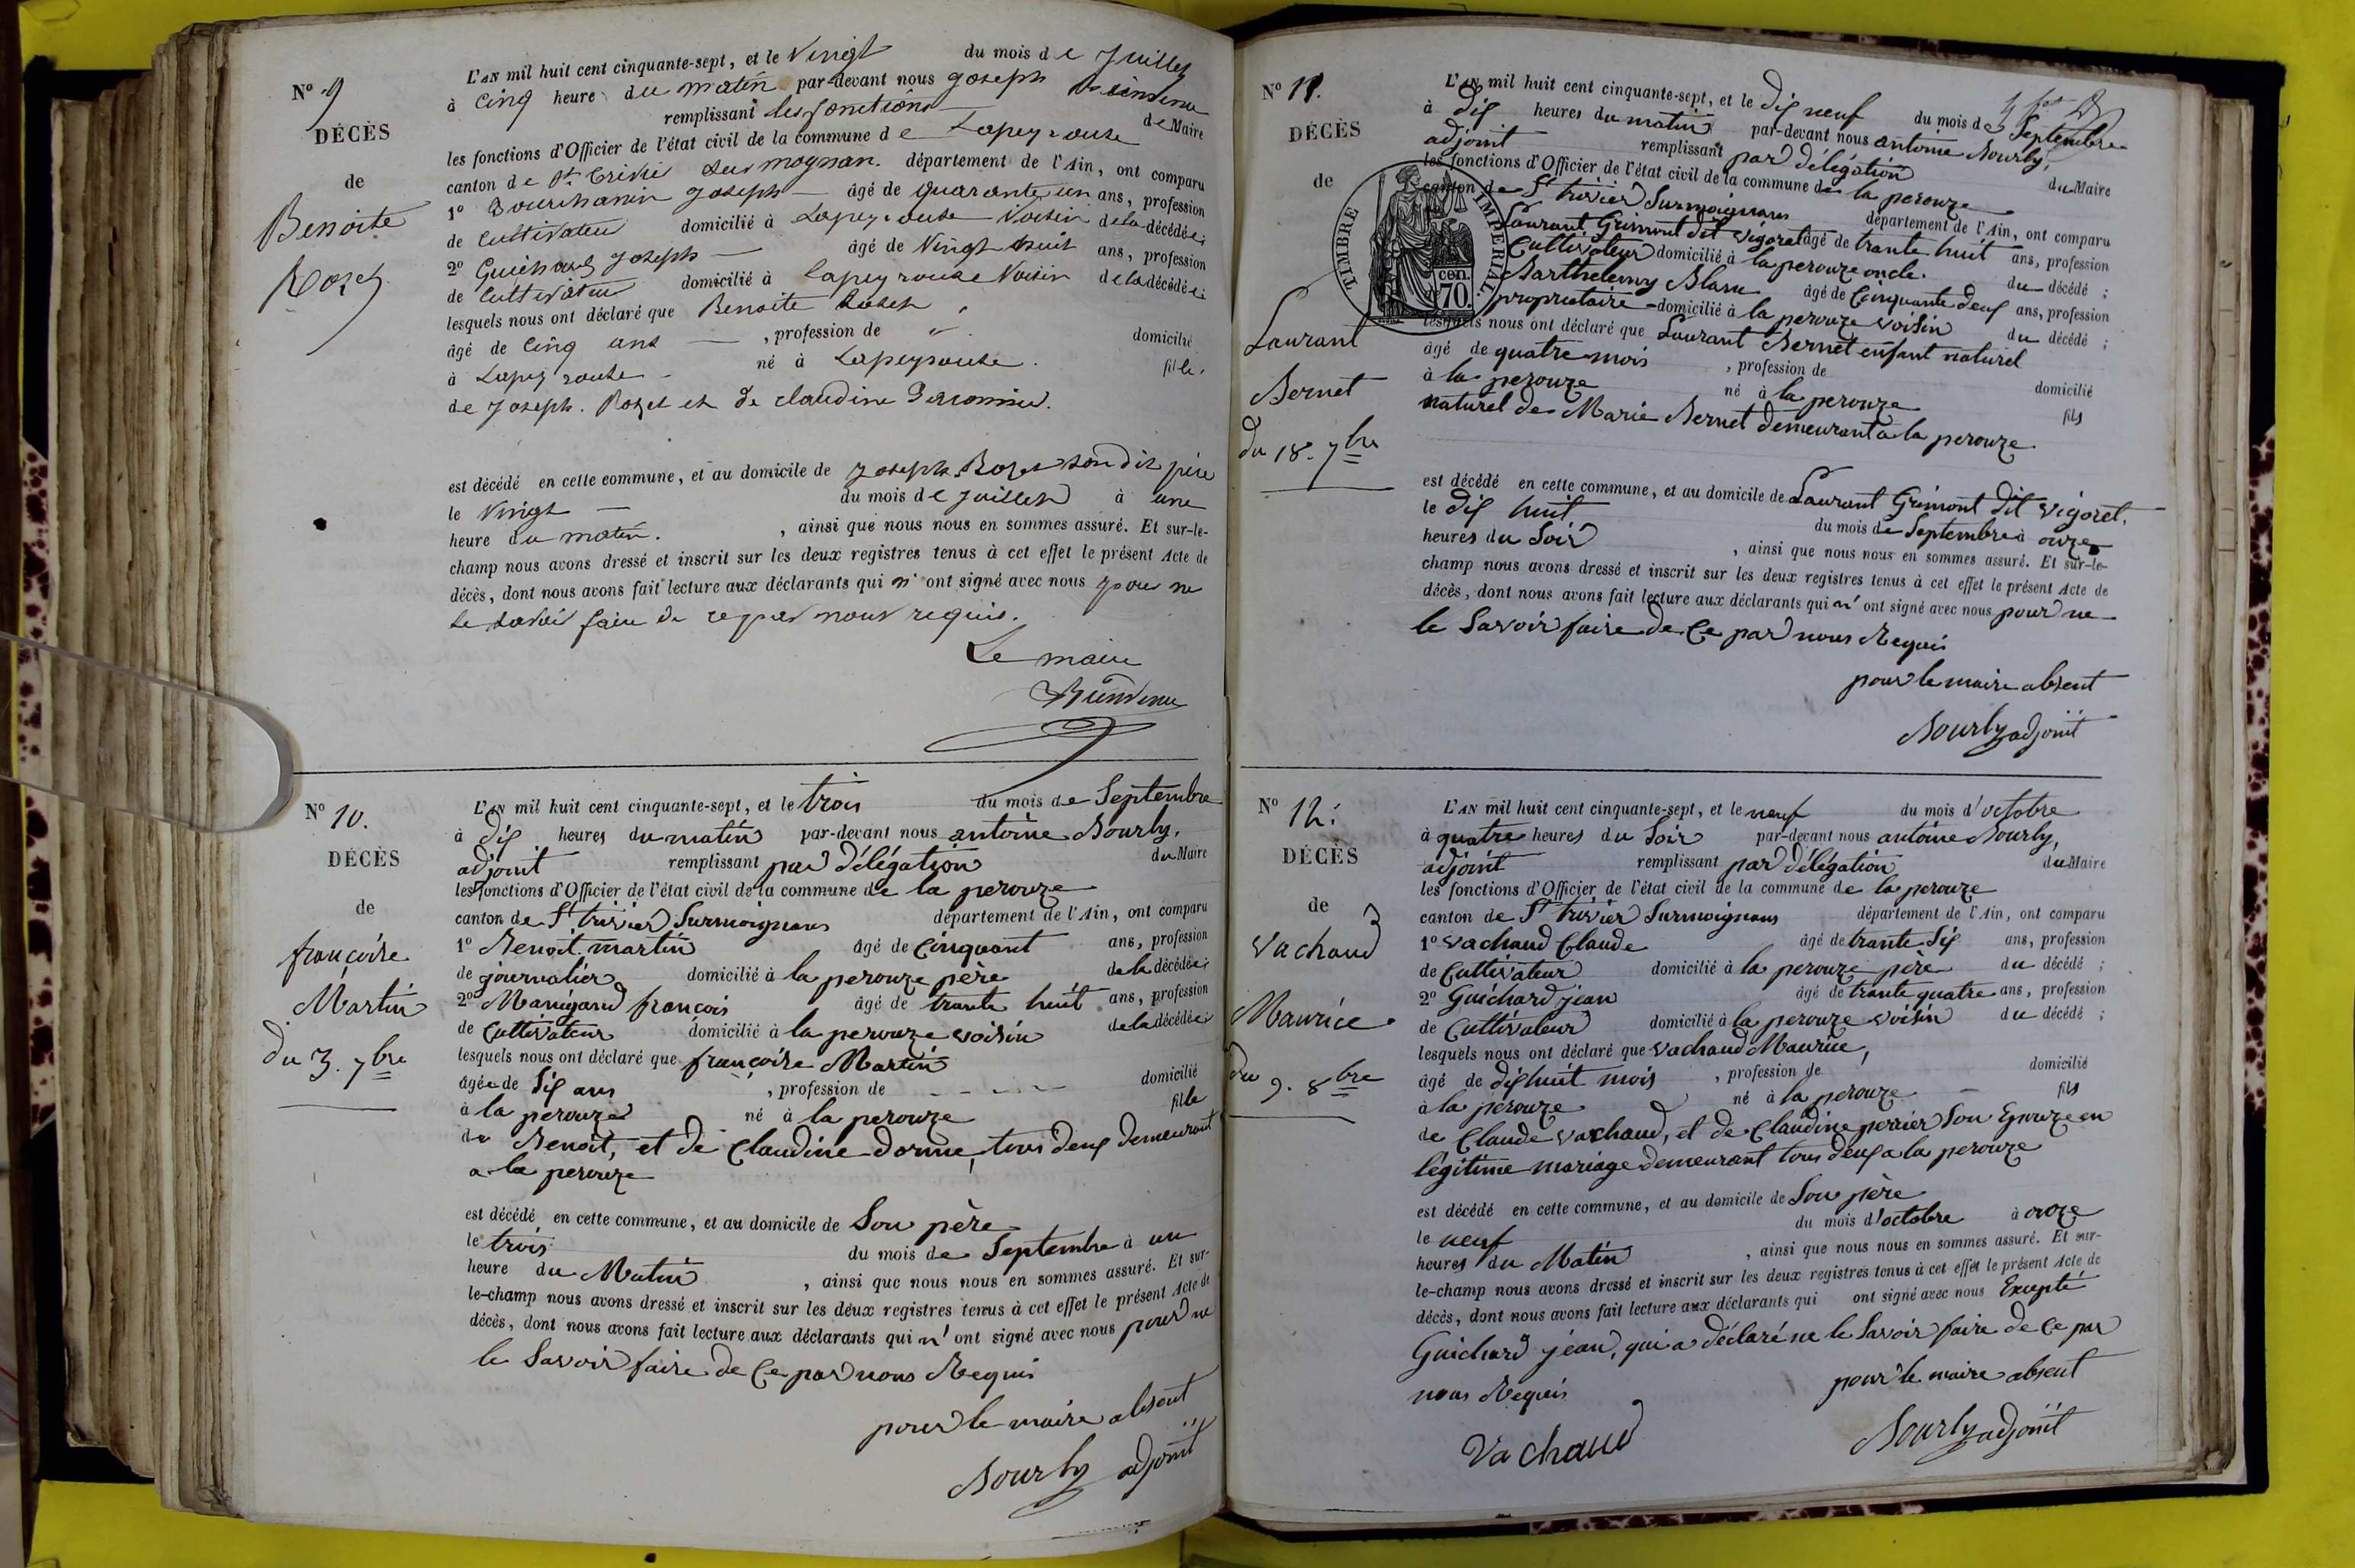 N° 9
DÉCÈS
de
Benoite
Rozet
L'AN mil huit cent cinquante-sept, et le Vingt du mois de Juillet
à Cinq heure du matin par-devant nous Joseph
remplissant les fonctions de Maire
les fonctions d'Officier de l'état civil de la commune de Lapeyrouse
canton de St Trivié sur mognan. département de l'Ain, ont comparu
1° Joseph âgé de quarante un ans, profession
de Cultivateur domicilié à Lapeyrouse Voisin de la décédée;
2° Guichard Joseph âgé de Vingt huit ans, profession
de Cultivateur domicilié à Lapeyrouse Voisin de la décédée;
lesquels nous ont déclaré que Benoite Rozet
âgé de Cinq ans , profession de " domicilié
à Lapeyrouse né à Lapeyrouse. fille,
de Joseph. Rozet et de Claudine
est décédé en cette commune, et au domicile de Joseph Rozet son dit père
le Vingt du mois de Juillet à une
heure du matin. , ainsi que nous nous en sommes assuré. Et sur-le-
champ nous avons dressé et inscrit sur les deux registres tenus à cet effet le présent Acte de
décès, dont nous avons fait lecture aux déclarants qui n'ont signé avec nous pour ne
le savoir faire de ce par nous requis.
Le maire
N° 10.
DÉCÈS
de
françoise
Martin
du 3. 7bre
L'AN mil huit cent cinquante-sept, et le trois du mois de Septembre
à dix heures du matin par-devant nous antoine Bourly,
adjoint remplissant par délégation du Maire
les fonctions d'Officier de l'état civil de la commune de la perouze
canton de St trivier Surmoignans département de l'Ain, ont comparu
1° Benoit martin âgé de Cinquant ans, profession
de journalier domicilié à la perouze père de la décédée;
2° Manigand françois âgé de trante huit ans, profession
de Cultivateur domicilié à la perouze voisin de la décédée
lesquels nous ont déclaré que françoise Martin
âgée de Six ans , profession de domicilié
à la perouze né à la perouze fille
de Benoit, et de Claudine Donne, tous deux demeurant
a la perouze
est décédé en cette commune, et au domicile de Son père
le trois du mois de Septembre à un
heure du Matin , ainsi que nous nous en sommes assuré. Et sur-
le-champ nous avons dressé et inscrit sur les deux registres tenus à cet effet le présent Acte de
décès, dont nous avons fait lecture aux déclarants qui n'ont signé avec nous pour ne
le Savoir faire de Ce par nous Requis
pour le maire absent
Bourly adjoint
N° 11.
DÉCÈS
de
Laurant
Bernet
du 18. 7bre
TIMBRE IMPÉRIAL.
cen.
70.
L'AN mil huit cent cinquante-sept, et le dix neuf du mois de Septembre
à dix heures du matin par-devant nous antoine Bourly,
adjoint remplissant par délégation du Maire
les fonctions d'Officier de l'état civil de la commune de la perouze
canton de St trivier Surmoignans département de l'Ain, ont comparu
Laurant Grimont dit Vigoret âgé de trante huit ans, profession
Cultivateur domicilié à la perouze oncle. du décédé ;
Barthelemy Blanc âgé de Cinquante deux ans, profession
propriétaire domicilié à la perouze voisin du décédé ;
lesquels nous ont déclaré que Laurant Bernet enfant naturel
âgé de quatre mois , profession de domicilié
à la perouze né à la perouze fils
naturel de Marie Bernet demeurant a la perouze
est décédé en cette commune, et au domicile de Laurant Grimont dit Vigoret.
le dix huit du mois de Septembre à onze
heures du Soir , ainsi que nous nous en sommes assuré. Et sur-le-
champ nous avons dressé et inscrit sur les deux registres tenus à cet effet le présent Acte de
décès, dont nous avons fait lecture aux déclarants qui n'ont signé avec nous pour ne
le Savoir faire de Ce par nous Requis
pour le maire absent
Bourly adjoint
N° 12.
DÉCÈS
de
Vachaud
Maurice
du 9. 8bre
L'AN mil huit cent cinquante-sept, et le neuf du mois d'octobre
à quatre heures du Soir par-devant nous antoine Bourly,
adjoint remplissant par délégation du Maire
les fonctions d'Officier de l'état civil de la commune de la perouze
canton de St trivier Surmoignans département de l'Ain, ont comparu
1° Vachaud Claude âgé de trante Six ans, profession
de Cultivateur domicilié à la perouze père du décédé ;
2° Guichard jean âgé de trante quatre ans, profession
de Cultivateur domicilié à la perouze voisin du décédé ;
lesquels nous ont déclaré que Vachaud Maurice,
âgé de dix huit mois , profession de domicilié
à la perouze né à la perouze fils
de Claude Vachaud, et de Claudine perrier Son Epouze en
légitime mariage demeurant tous deux a la perouze
est décédé en cette commune, et au domicile de Son père
le neuf du mois d'octobre à onze
heures du Matin , ainsi que nous nous en sommes assuré. Et sur-
le-champ nous avons dressé et inscrit sur les deux registres tenus à cet effet le présent Acte de
décès, dont nous avons fait lecture aux déclarants qui ont signé avec nous Excepté
Guichard jean, qui a déclaré ne le Savoir faire de Ce par
nous Requis
pour le maire absent
Vachaud
Bourly adjoint